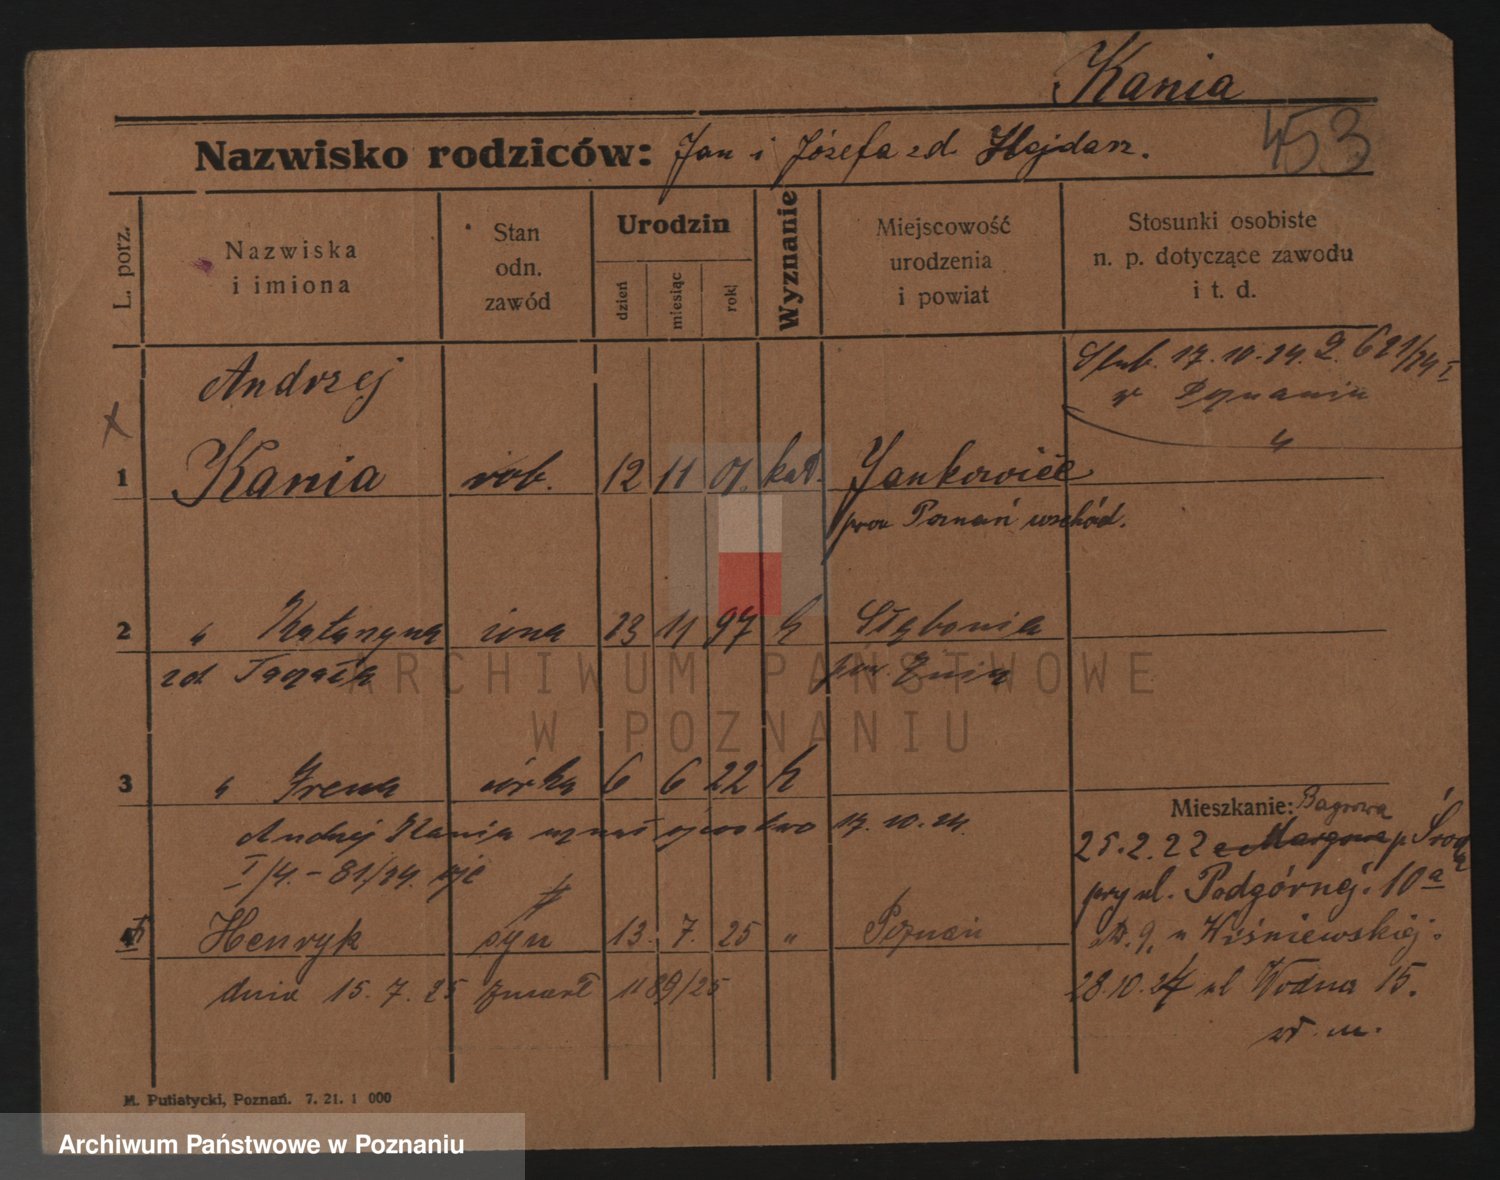 Kania
453
Nazwisko rodziców: Jan i Józefa zd. Hajdasz.
L. porz.
Nazwiska i imiona
Stan odn. zawód
Urodzin
dzień
miesiąc
rok
Wyznanie
Miejscowość urodzenia i powiat
Stosunki osobiste n. p. dotyczące zawodu i t. d.
Ślub. 17. 10. 24. 621/24 I
w Poznaniu
Andrzej
1 Kania rob. 12 11 01. kat. Jankowice
pow Poznań wschód.
2 " Katarzyna żona 23 11 97 k
zd. pow. Żnin
3 " Irena córka 6 6 22 k
Andrzej Kania uznał ojcostwo 17. 10. 24.
I/4. – 81/24.
4 Henryk syn 13. 7. 25 " Poznań
dnia 15. 7. 25 zmarł 1189/25
Mieszkanie: Bagrowa
25. 2. 22 z p. Środa
przy ul. Podgórnej. 10a
u Wiśniewskiej.
28. 10. 24 ul Wodna 15.
M. Putiatycki, Poznań. 7. 21. 1 000
ARCHIWUM PAŃSTWOWE
W POZNANIU
Archiwum Państwowe w Poznaniu